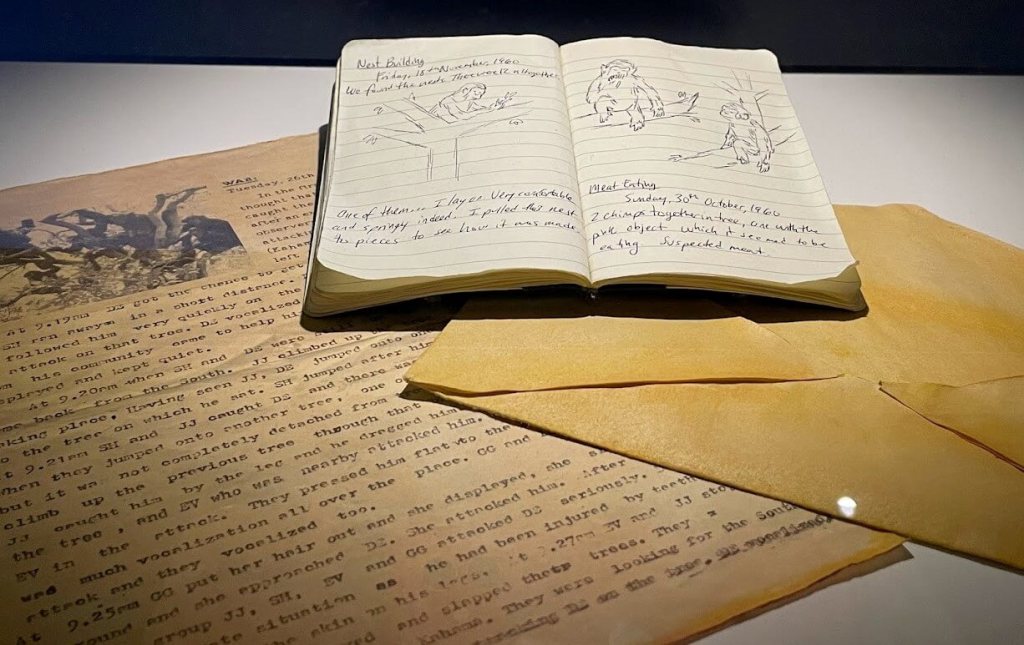 Nest Building
Friday, 18th November, 1960
We found the nests. Three week altogether
One of them... I lay on. Very comfortable
and springy indeed. I pulled that nest
to pieces to see how it was made
Meat Eating
Sunday, 30th October, 1960
2 chimps together in tree, one with the
pink object which it seemed to be
eating Suspected meat.
WAR:
Tuesday, 26th
in the
thought tha
caught th
after an e
observe
attack
(Kaham
left.
At 9.19am DE got the chance to ge
SH ran away in a short distance.
followed him very quickly on the
attack on that tree. DE vocalized
m his community came to help hi
splayed and kept quiet.
At 9.20am when SH and DE were
me back from the South. JJ climbed up
aking place. Having seen JJ, DE jumped onto
to the tree on which he sat. SH jumped after hi
At 9.21am SH and JJ caught DE and there
when they jumped onto another tree, one
but it was not completely detached from
climb up the previous tree through that
JJ caught him by the leg and he dragged him
the tree, and EV who was nearby attacked him.
EV in the attack. They pressed him flat to the
was much vocalization all over the place. GG and
attack and they vocalized too.
At 9.25am GG put her hair out and she displayed, she
round and she approached DE. She attacked him.
group JJ, SH, EV and GG attacked DE seriously. After
te situation as he had been injured by teeth
the skin on his legs. At 9.27am EV and JJ sto
red and slapped their trees. They
Kahama. They were looking for the South
attacking DE on the tree. DE vocalized,